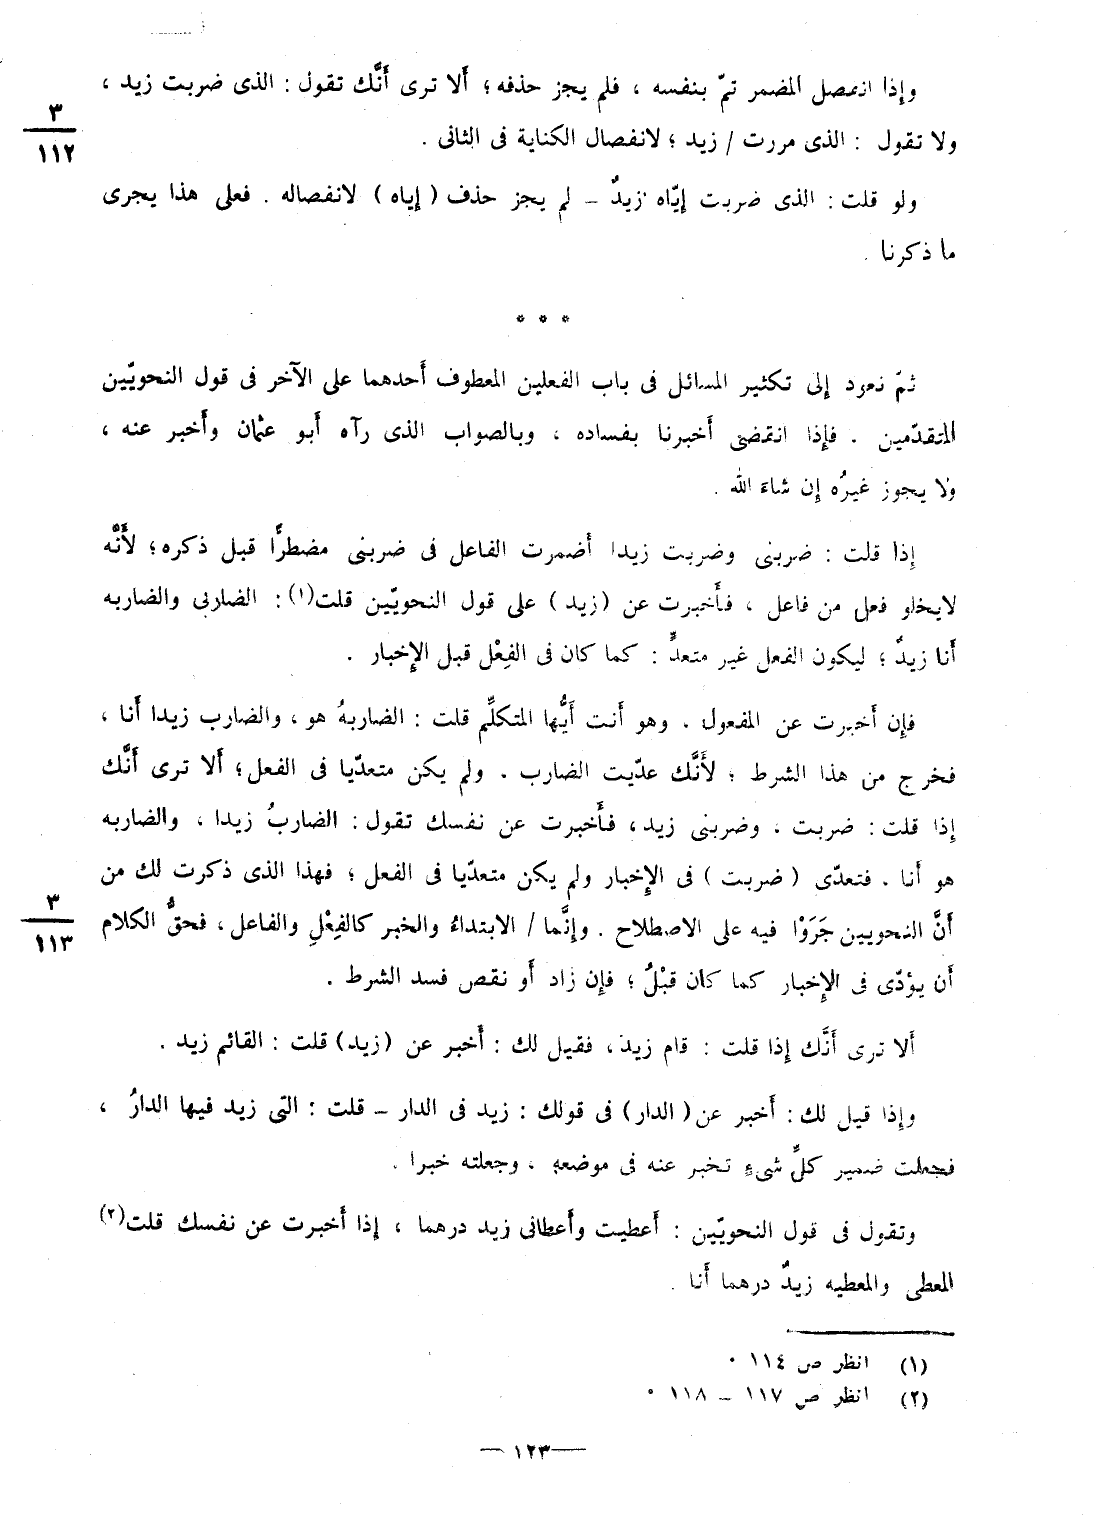 وإذا انفصل المضمر تمّ بنفسه ، فلم يجز حذفه ؛ أَلا ترى أَنَّك تقول : الذى ضربت زيد ،
٣
١١٢
ولا تقول : الذى مررت / زيد ؛ لانفصال الكناية فى الثانى .
ولو قلت : الذى ضربت إيّاه زيدٌ – لم يجز حذف ( إياه ) لانفصاله . فعلى هذا يجرى
ما ذكرنا .
* * *
ثمّ نعود إلى تكثير المسائل فى باب الفعلين المعطوف أَحدهما على الآخر فى قول النحويّين
المتقدّمين . فإذا انقضى أَخبرنا بفساده ، وبالصواب الذى رآه أَبو عثمان وأَخبر عنه ،
ولا يجوز غيرُه إن شاءَ الله .
إذا قلت : ضربنى وضربت زيدا أَضمرت الفاعل فى ضربنى مضطرًّا قبل ذكره ؛ لأَنَّه
لايخلو فعل من فاعل ، فأَخبرت عن (زيد) على قول النحويّين قلت(١) : الضاربى والضاربه
أَنا زيدٌ ؛ ليكون الفعل غير متعدٍّ : كما كان فى الفِعْل قبل الإِخبار .
فإِن أَخبرت عن المفعول . وهو أَنت أَيُّها المتكلِّم قلت : الضاربهُ هو ، والضارب زيدا أَنا ،
فخرج من هذا الشرط ؛ لأَنَّك عدّيت الضارب . ولم يكن متعدّيا فى الفعل ؛ أَلا ترى أَنَّك
إذا قلت : ضربت ، وضربنى زيد ، فأَخبرت عن نفسك تقول : الضاربُ زيدا ، والضاربه
هو أَنا . فتعدّى ( ضربت ) فى الإِخبار ولم يكن متعدّيا فى الفعل ؛ فهذا الذى ذكرت لك من
٣
١١٣
أَنَّ النحويين جَرَوْا فيه على الاصطلاح . وإنَّما / الابتداءُ والخبر كالفِعْلِ والفاعل ، فحقُّ الكلام
أَن يؤدّى فى الإِخبار كما كان قبْلُ ؛ فإِن زاد أَو نقص فسد الشرط .
أَلا ترى أَنَّك إذا قلت : قام زيد ، فقيل لك : أَخبر عن (زيد) قلت : القائم زيد .
وإذا قيل لك : أَخبر عن ( الدار) فى قولك : زيد فى الدار – قلت : التى زيد فيها الدارُ ،
فجعلت ضمير كلِّ شىءٍ تخبر عنه فى موضعه ، وجعلته خبرا .
وتقول فى قول النحويّين : أَعطيت وأَعطانى زيد درهما ، إذا أَخبرت عن نفسك قلت(٢)
المعطى والمعطيه زيدٌ درهما أَنا .
(١) انظر ص ١١٤ .
(٢) انظر ص ١١٧ – ١١٨ .
— ١٢٣ —